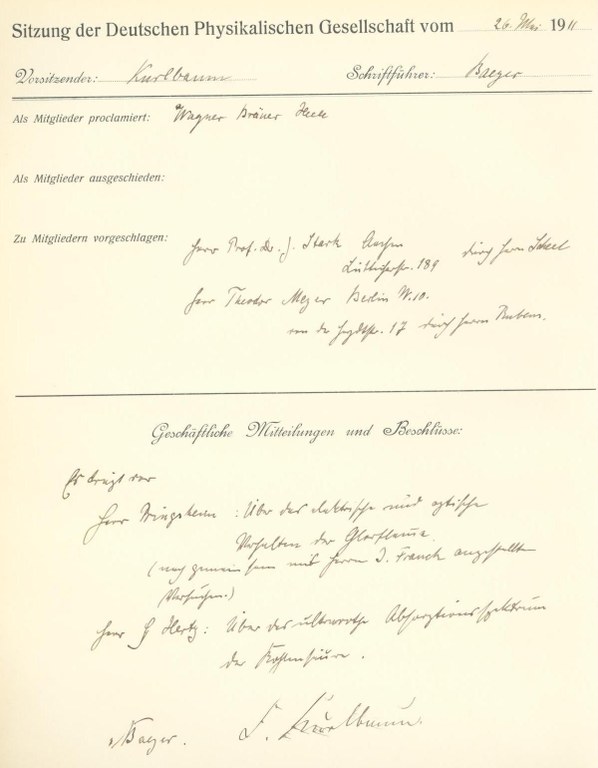 Sitzung der Deutschen Physikalischen Gesellschaft vom 26. Mai 1911
Vorsitzender: Kurlbaum Schriftführer: Baeyer
Als Mitglieder proclamiert: Wagner Bräuer
Als Mitglieder ausgeschieden:
Zu Mitgliedern vorgeschlagen: Herr Prof. Dr. J. Stark Aachen durch Herrn Scheel
Lütticherstr. 189
Herr Theodor Meyer Berlin W. 10.
von der Heydtstr. 17 durch Herrn Rubens.
Geschäftliche Mitteilungen und Beschlüsse:
Es trägt vor
Herr Pringsheim: Über das elektrische und optische
Verhalten der Chlorflamme.
(nach gemeinsam mit Herrn J. Franck angestellten
Versuchen.)
Herr G Hertz: Über das ultrarothe Absorptionsspektrum
der Kohlensäure.
v Baeyer. F. Kurlbaum